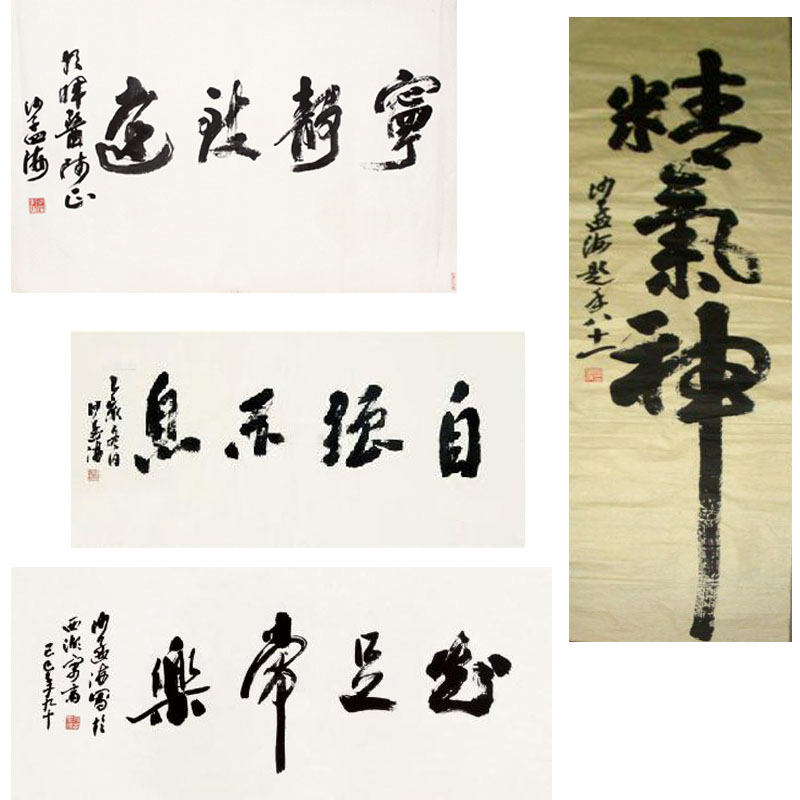 寧靜致遠
暉醫師正
沙孟海
自強不息
冬月
沙孟海
知足常樂
沙孟海寫於
西湖寓
己巳年九十
精氣神
沙孟海題年八十一